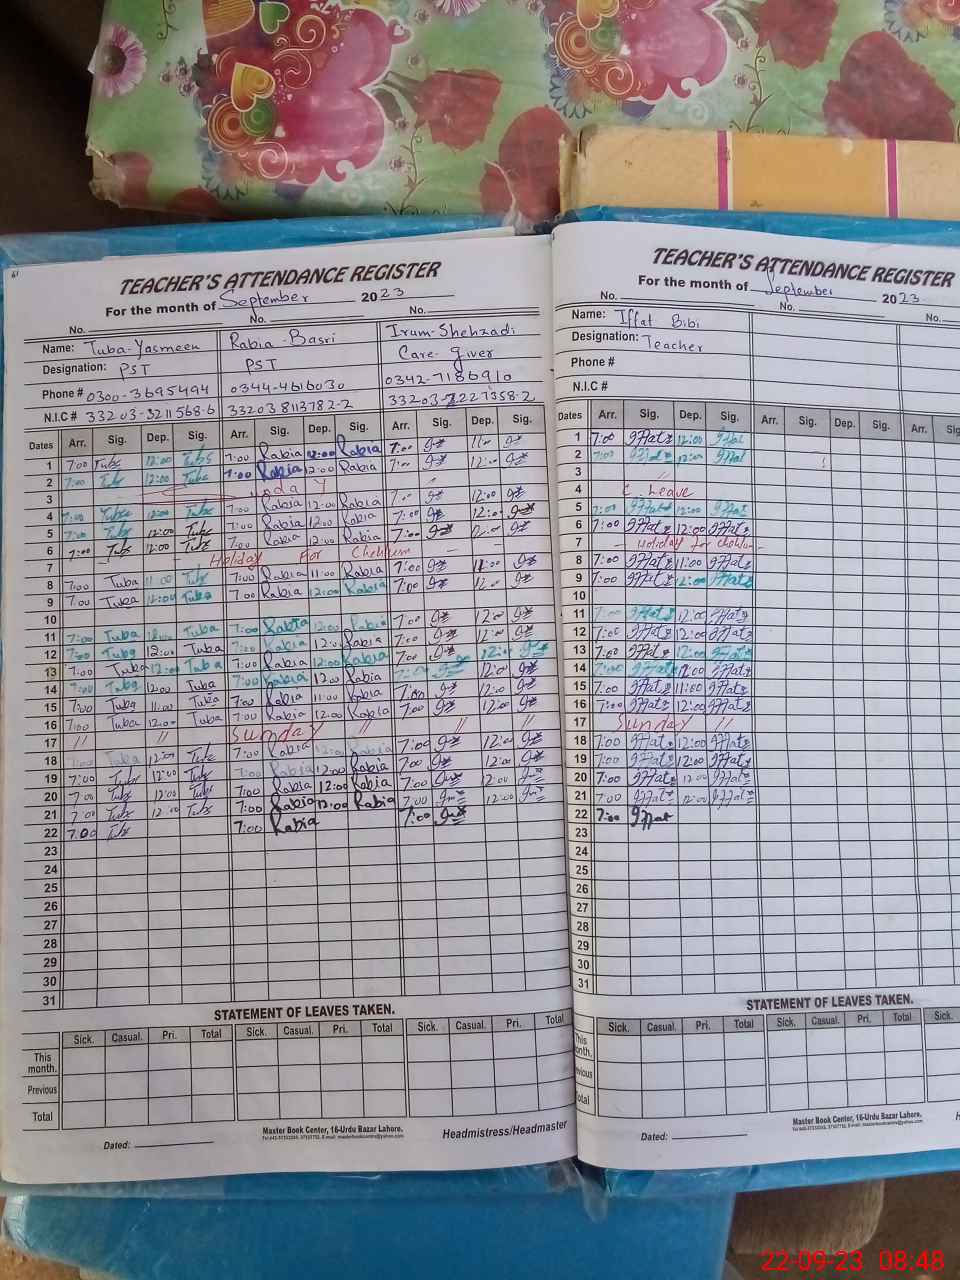 61
TEACHER'S ATTENDANCE REGISTER
For the month of September 2023
No. No. No.
Name: Tuba-Yasmeen Rabia-Basri Irum-Shehzadi
Designation: PST PST Care-giver
Phone # 0300-3695494 0344-4616030 0342-7186910
N.I.C # 33203-3211568-6 332038113782-2
Dates Arr. Sig. Dep. Sig. Arr. Sig. Dep. Sig. Arr. Sig. Dep. Sig.
1 7:00 Tuba 12:00 Tuba 7:00 Rabia 12:00 Rabia 7:00
2 7:00 Tuba 12:00 Tuba 7:00 Rabia 12:00 Rabia 7:00 12:00
3
4 7:00 Tuba 12:00 Tuba 7:00 Rabia 12:00 Rabia 7:00 12:00
5 7:00 Tuba 12:00 Tuba 7:00 Rabia 12:00 Rabia 7:00 12:00
6 7:00 Tuba 12:00 Tuba 7:00 Rabia 12:00 Rabia 7:00 12:00
7 Holiday For Chehlum
8 7:00 Tuba 11:00 Tuba 7:00 Rabia 11:00 Rabia 7:00 11:00
9 7:00 Tuba 12:00 Tuba 7:00 Rabia 12:00 Rabia 7:00 12:00
10
11 7:00 Tuba 12:00 Tuba 7:00 Rabia 12:00 Rabia 7:00 12:00
12 7:00 Tuba 12:00 Tuba 7:00 Rabia 12:00 Rabia 7:00 12:00
13 7:00 Tuba 12:00 Tuba 7:00 Rabia 12:00 Rabia 7:00 12:00
14 7:00 Tuba 12:00 Tuba 7:00 Rabia 12:00 Rabia 7:00 12:00
15 7:00 Tuba 11:00 Tuba 7:00 Rabia 11:00 Rabia 7:00 12:00
16 7:00 Tuba 12:00 Tuba 7:00 Rabia 12:00 Rabia 7:00 12:00
17 // // Sunday // // //
18 7:00 Tuba 12:00 Tuba 7:00 Rabia 12:00 Rabia 7:00 12:00
19 7:00 Tuba 12:00 Tuba 7:00 Rabia 12:00 Rabia 7:00 12:00
20 7:00 Tuba 12:00 Tuba 7:00 Rabia 12:00 Rabia 7:00 12:00
21 7:00 Tuba 12:00 Tuba 7:00 Rabia 12:00 Rabia 7:00 12:00
22 7:00 Tuba 7:00 Rabia 7:00
23
24
25
26
27
28
29
30
31
STATEMENT OF LEAVES TAKEN.
Sick. Casual. Pri. Total Sick. Casual. Pri. Total Sick. Casual. Pri. Total
This month.
Previous
Total
Master Book Center, 16-Urdu Bazar Lahore.
Dated: Headmistress/Headmaster
TEACHER'S ATTENDANCE REGISTER
For the month of September 2023
No. No. No.
Name: Iffat Bibi
Designation: Teacher
Phone #
N.I.C #
Dates Arr. Sig. Dep. Sig. Arr. Sig. Dep. Sig. Arr. Sig.
1 7:00 Iffat 12:00 Iffat
2 7:00 Iffat 12:00 Iffat
3 //
4 C. Leave
5 7:00 Iffat 12:00 Iffat
6 7:00 Iffat 12:00 Iffat
7 Holiday for Chehlum
8 7:00 Iffat 11:00 Iffat
9 7:00 Iffat 12:00 Iffat
10
11 7:00 Iffat 12:00 Iffat
12 7:00 Iffat 12:00 Iffat
13 7:00 Iffat 12:00 Iffat
14 7:00 Iffat 12:00 Iffat
15 7:00 Iffat 11:00 Iffat
16 7:00 Iffat 12:00 Iffat
17 Sunday //
18 7:00 Iffat 12:00 Iffat
19 7:00 Iffat 12:00 Iffat
20 7:00 Iffat 12:00 Iffat
21 7:00 Iffat 12:00 Iffat
22 7:00 Iffat
23
24
25
26
27
28
29
30
31
STATEMENT OF LEAVES TAKEN.
Sick. Casual. Pri. Total Sick. Casual. Pri. Total Sick.
This month.
Previous
Total
Master Book Center, 16-Urdu Bazar Lahore.
Dated:
22-09-23 08:48